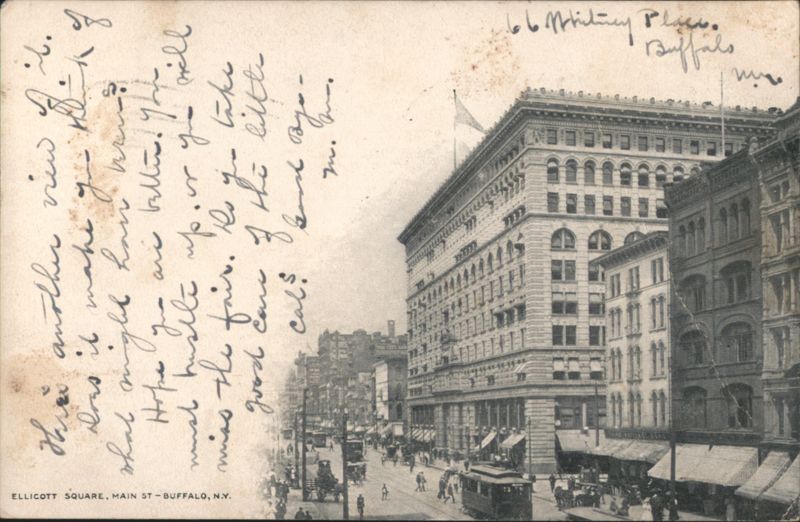 66 Whitney Place.
Buffalo
Here's another view of it.
Does it make you think of
what might have been?
Hope you are better. You
must hustle up, or you will
miss the fair. Do you take
good care of the little
cal? Good Bye—
M. M.
ELLICOTT SQUARE, MAIN ST – BUFFALO, N.Y.